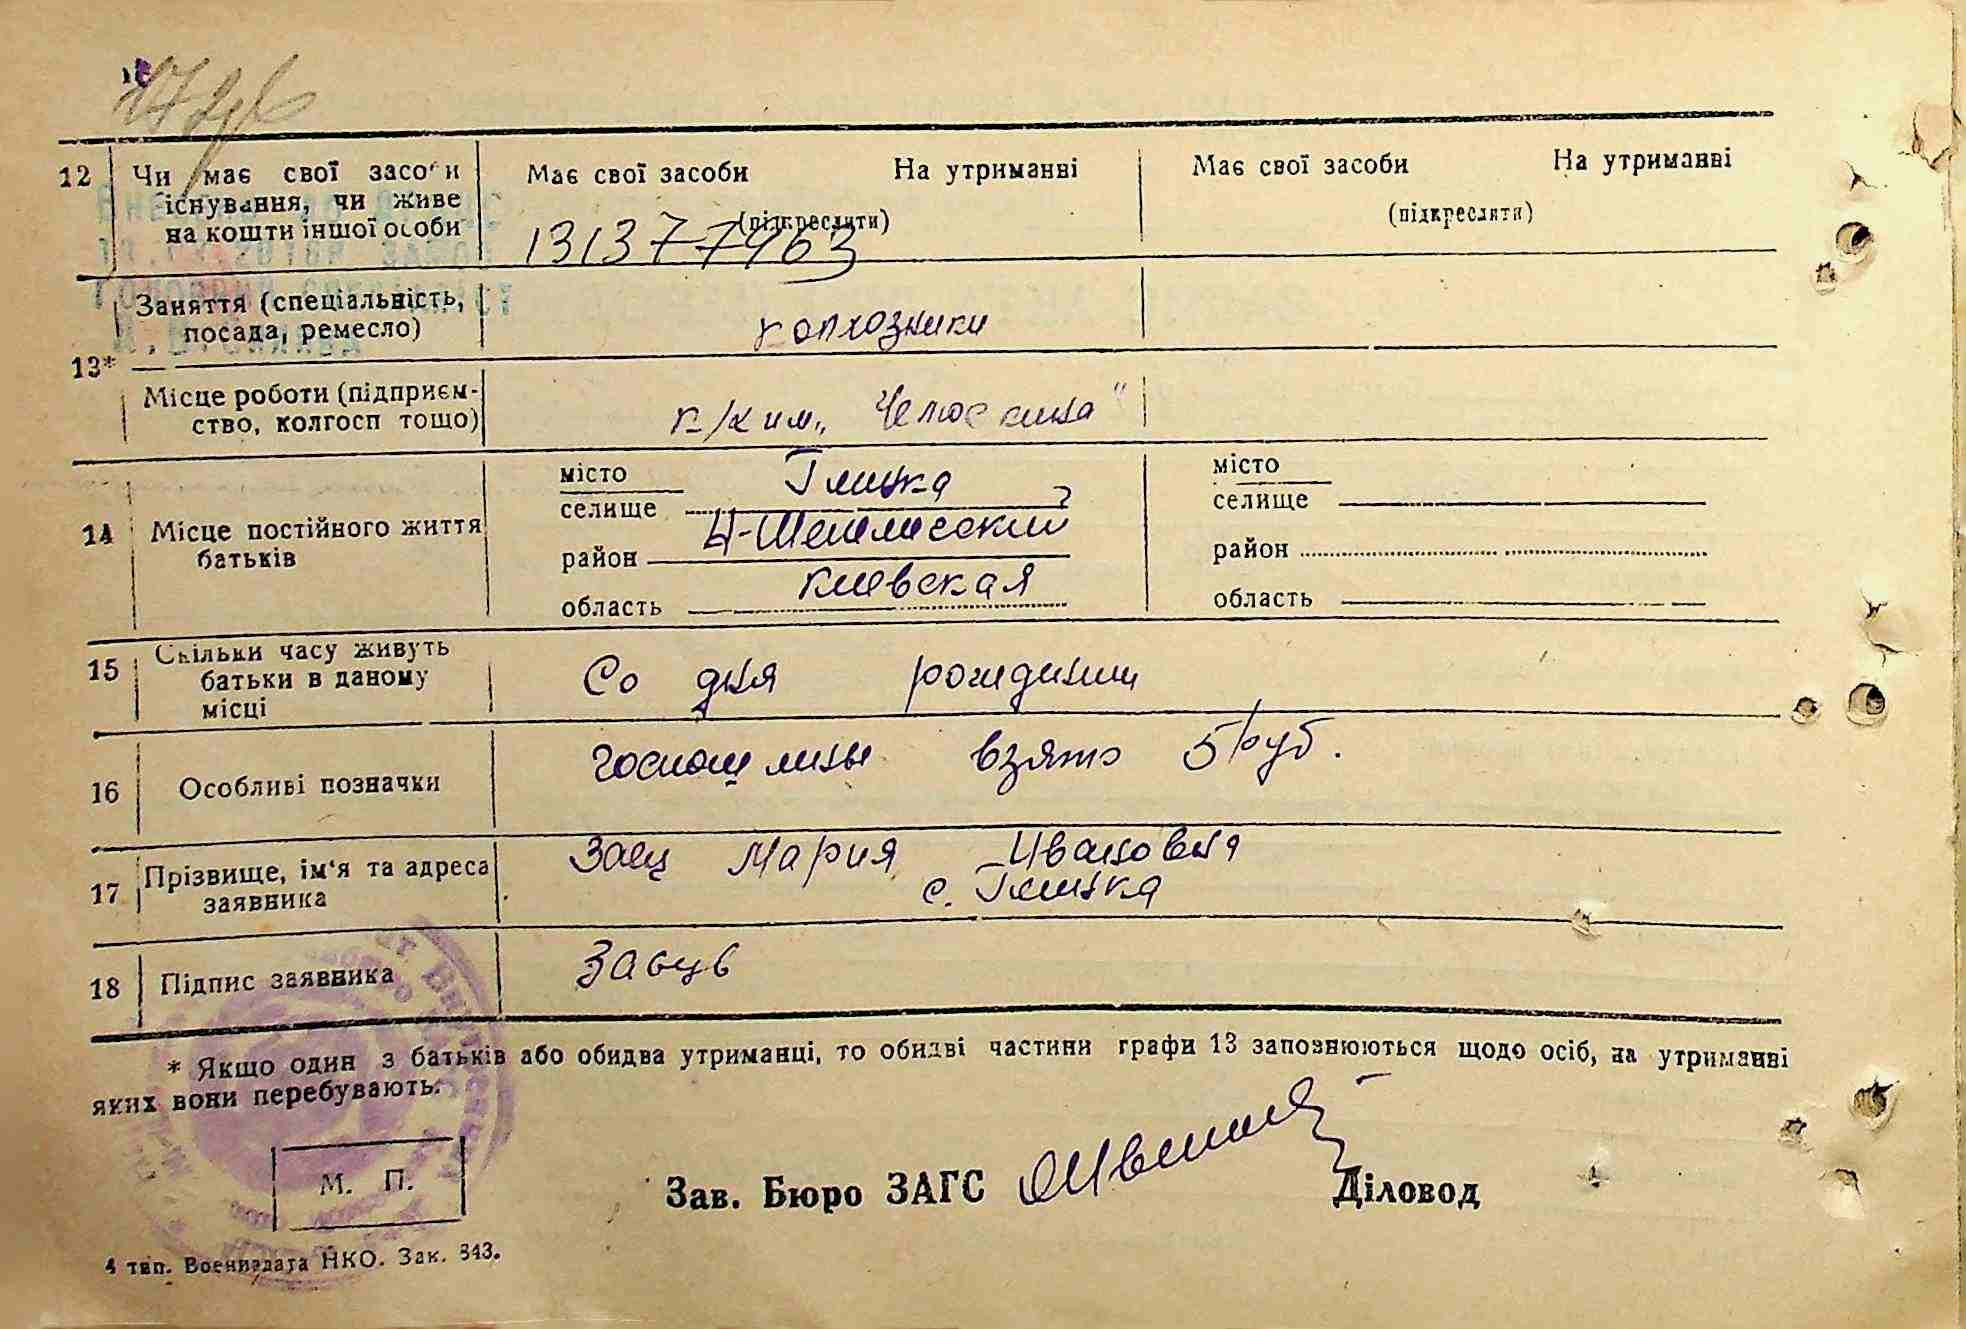 12 Чи має свої засоби Має свої засоби На утриманні Має свої засоби На утриманні
існування, чи живе (підкреслити) (підкреслити)
на кошти іншої особи 131377463
Заняття (спеціальність, колхозники
посада, ремесло)
13*
Місце роботи (підприєм-
ство, колгосп тощо) к/х им. „Челюскина"
місто Глинка місто
селище селище
14 Місце постійного життя район район
батьків
область киевская область
15 Скільки часу живуть
батьки в даному Со дня рождения
місці
16 Особливі позначки госпошлины взято 5 руб.
17 Прізвище, ім'я та адреса Заец Мария Ивановна
заявника с. Глинка
18 Підпис заявника
* Якщо один з батьків або обидва утриманці, то обидві частини графи 13 запознюються щодо осіб, на утриманні
яких вони перебувають.
М. П.
Зав. Бюро ЗАГС Діловод
4 тип. Воениздата НКО. Зак. 343.